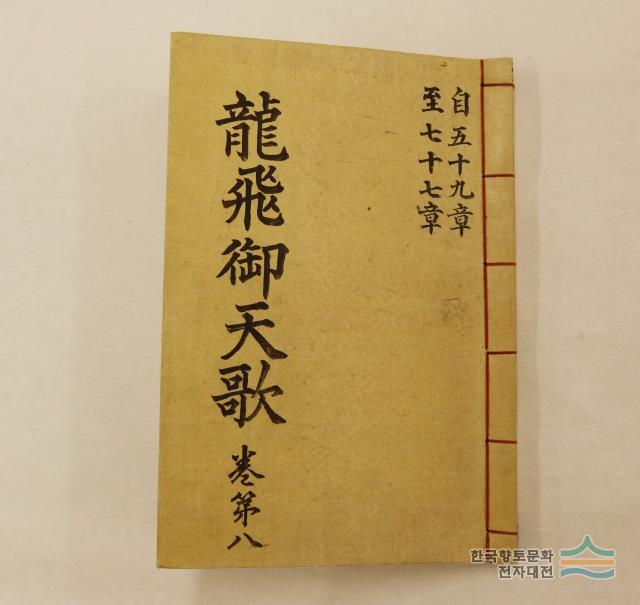 自五十九章
至七十七章
龍飛御天歌 卷第八
한국향토문화
전자대전